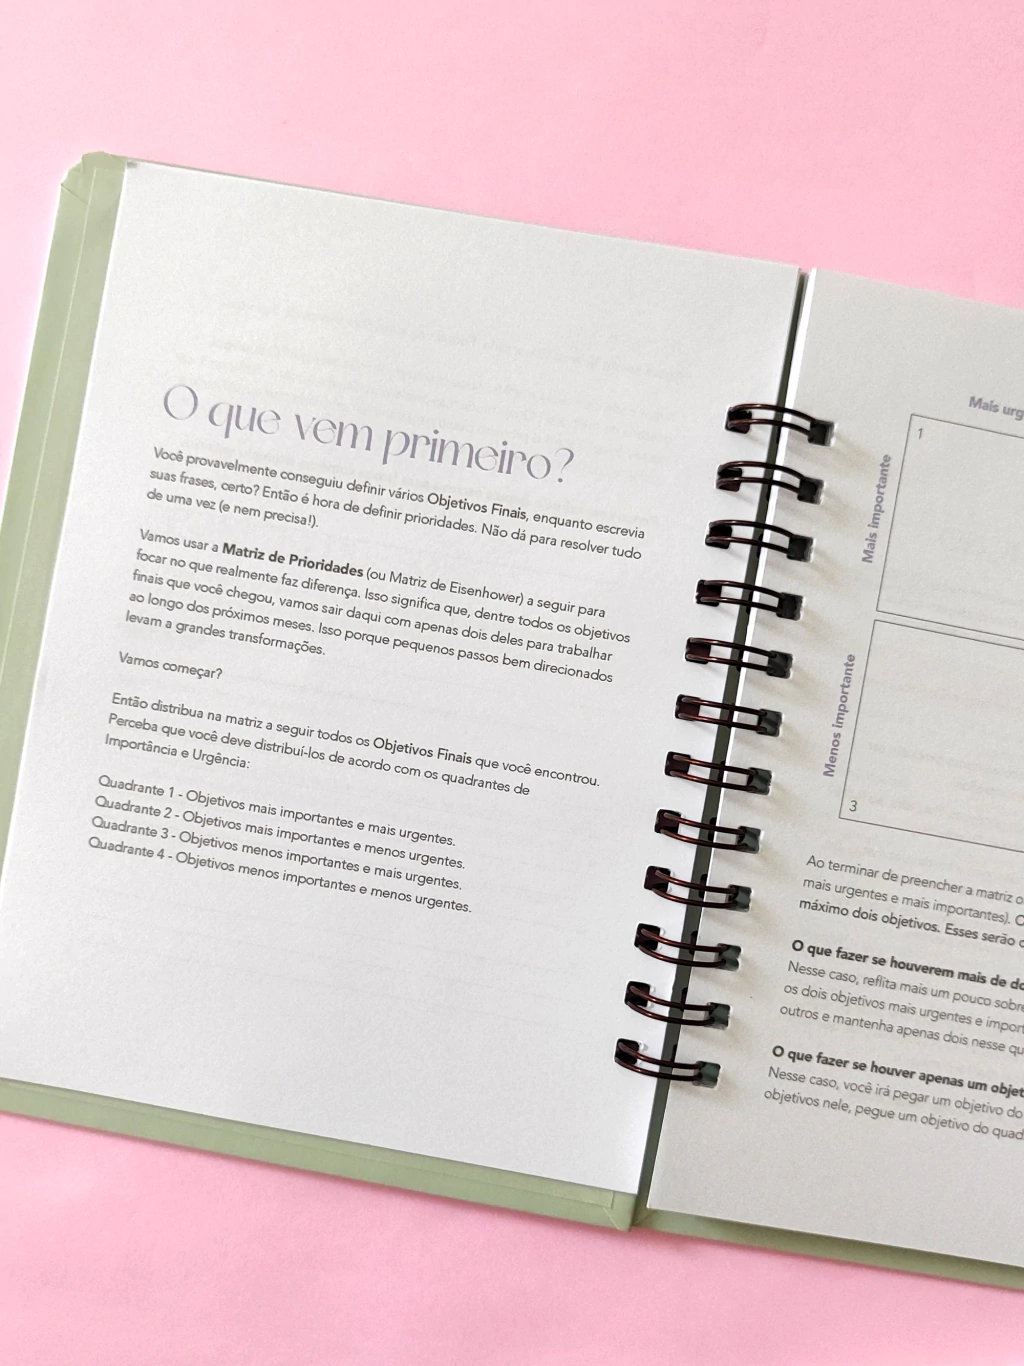 O que vem primeiro?
Você provavelmente conseguiu definir vários Objetivos Finais, enquanto escrevia
suas frases, certo? Então é hora de definir prioridades. Não dá para resolver tudo
de uma vez (e nem precisa!).
Vamos usar a Matriz de Prioridades (ou Matriz de Eisenhower) a seguir para
focar no que realmente faz diferença. Isso significa que, dentre todos os objetivos
finais que você chegou, vamos sair daqui com apenas dois deles para trabalhar
ao longo dos próximos meses. Isso porque pequenos passos bem direcionados
levam a grandes transformações.
Vamos começar?
Então distribua na matriz a seguir todos os Objetivos Finais que você encontrou.
Perceba que você deve distribuí-los de acordo com os quadrantes de
Importância e Urgência:
Quadrante 1 - Objetivos mais importantes e mais urgentes.
Quadrante 2 - Objetivos mais importantes e menos urgentes.
Quadrante 3 - Objetivos menos importantes e mais urgentes.
Quadrante 4 - Objetivos menos importantes e menos urgentes.
Mais urg
1
Mais importante
Menos importante
3
Ao terminar de preencher a matriz o
mais urgentes e mais importantes).
máximo dois objetivos. Esses serão
O que fazer se houverem mais de do
Nesse caso, reflita mais um pouco sobre
os dois objetivos mais urgentes e impor
outros e mantenha apenas dois nesse qu
O que fazer se houver apenas um objet
Nesse caso, você irá pegar um objetivo do
objetivos nele, pegue um objetivo do quad